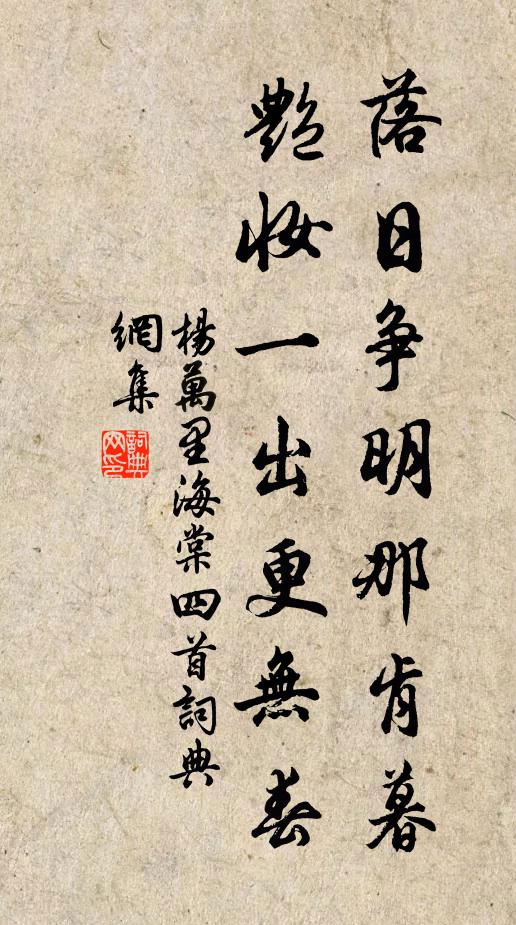 落日争明那肯暮
艷妝一出更無春
楊萬里海棠四首詞典
網集
詞典
网印